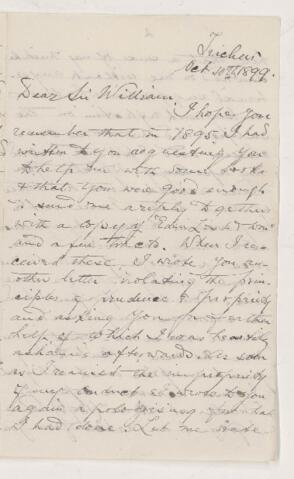 Oct 10th 1899.
Dear Sir William,
I hope you
remember that in 1895 I had
written to you requesting you
to help me with some books
& that you were good enough
to send me a reply together
with a copy of
and a few tracts. When I re-
ceived these I wrote you an-
other letter violating the prin-
ciples of prudence & propriety
and asking you for further
help of which I was heartily
ashamed afterwards. As soon
as I realised the impropriety
of my conduct I wrote to you
again apologising for what
I had done. Let me state